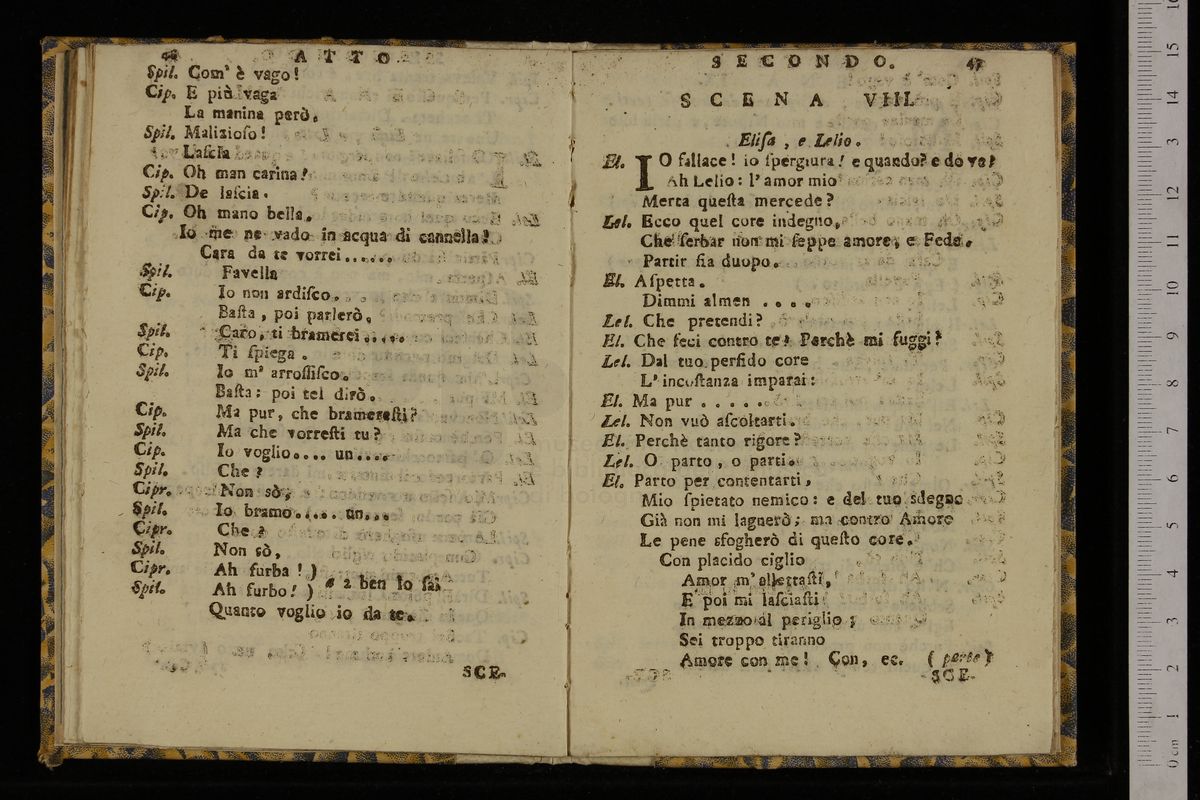 46 ATTO
Spil. Com' è vago!
Cip. E più vaga
La manina però.
Spil. Malizioſo!
Laſcia
Cip. Oh man carina!
Spil. De laſcia.
Cip. Oh mano bella.
Io me ne vado in acqua di cannella!
Cara da te vorrei......
Spil. Favella
Cip. Io non ardiſco.
Baſta, poi parlerò.
Spil. Caro, ti bramerei.....
Cip. Ti ſpiega.
Spil. Io m' arroſſiſco.
Baſta: poi tel dirò.
Cip. Ma pur, che bramereſti?
Spil. Ma che vorreſti tu?
Cip. Io voglio.... un....
Spil. Che?
Cipr. Non sò,
Spil. Io bramo..... un...
Cipr. Che?
Spil. Non sò,
Cipr. Ah furba! )
Spil. Ah furbo! ) a 2 ben lo ſai
Quanto voglio io da te.
SCE-
SECONDO. 47
SCENA VIII.
Eliſa, e Lelio.
El. IO fallace! io ſpergiura! e quando? e dove?
Ah Lelio: l' amor mio
Merta queſta mercede?
Lel. Ecco quel core indegno,
Che ſerbar non mi ſeppe amore, e Fede.
Partir ſia duopo.
El. Aſpetta.
Dimmi almen ....
Lel. Che pretendi?
El. Che feci contro te? Perchè mi fuggi?
Lel. Dal tuo perfido core
L' incoſtanza imparai:
El. Ma pur .....
Lel. Non vuò aſcoltarti.
El. Perchè tanto rigore?
Lel. O parto, o parti.
El. Parto per contentarti,
Mio ſpietato nemico: e del tuo sdegno
Già non mi lagnerò; ma contro Amore
Le pene sfogherò di queſto core.
Con placido ciglio
Amor m' allettaſti,
E poi mi laſciaſti
In mezzo al periglio;
Sei troppo tiranno
Amore con me! Con, ec. (parte)
SCE-